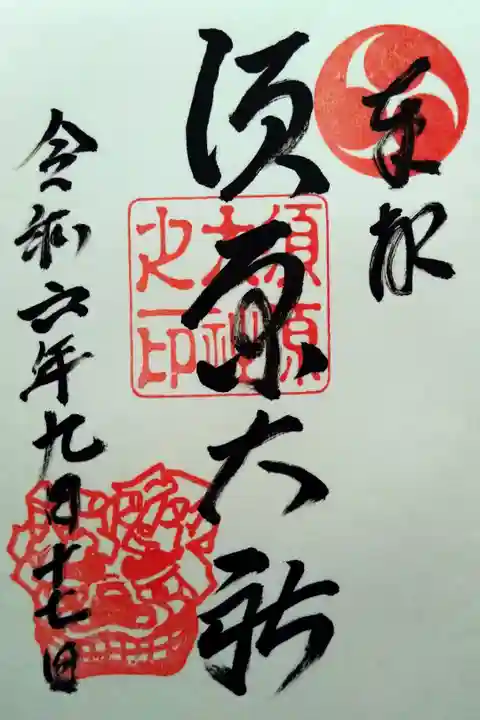 奉拝
須原大社
須原
大社
之印
令和六年九月十七日